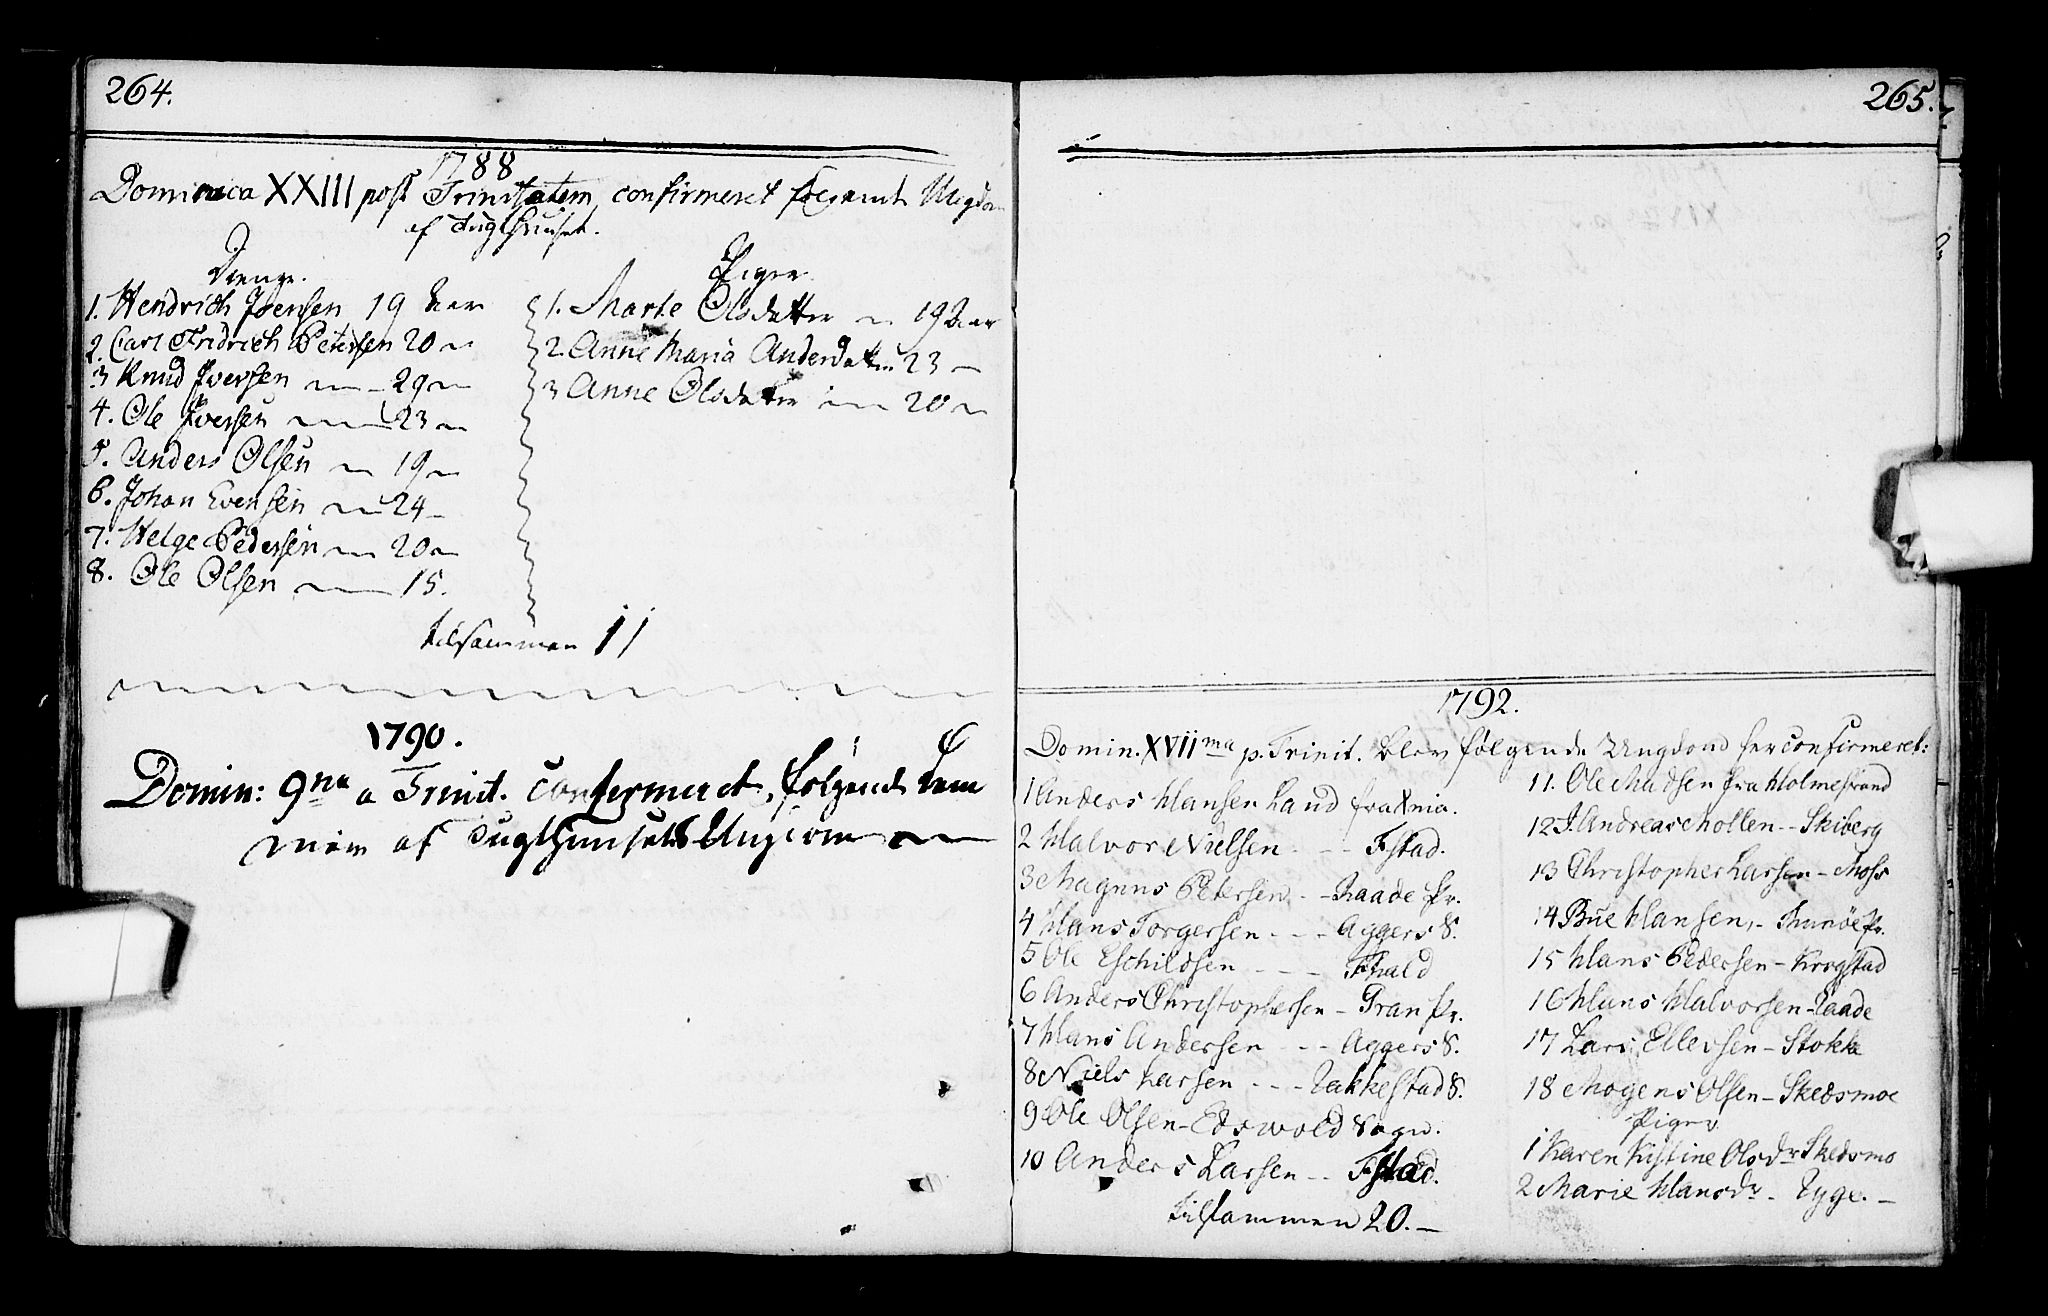 264.
1788
Dominica XXIII post Trinitatem, confirmeret følgende Ungdom
af Tugthuuset.
Drenge.
1. Hendrich Joensen 19 Aar
2. Carl Fridrich Petersen 20 –
3 Knud Iversen – 29 –
4. Ole Iversen – 23 –
5. Anders Olsen – 19 –
6. Johan Evensen – 24 –
7. Helge Pedersen – 20 –
8. Ole Olsen – 15.
Piger.
1. Marte Olsdatter – 19 Aar
2. Anne Maria Andersdatter 23 –
3 Anne Olsdatter – 20 –
tilsammen 11
1790.
Domin: 9na a Trinit. confermeret, følgende
af Tugthuusets Ungdom
265.
1792.
Domin. XVIIma p. Trinit. blev følgende Ungdom her confirmeret:
1 Anders Hansen Lund fra Xnia.
2 Halvor Nielsen - - Fstad.
3 Magnus Petersen - - Raade Pr.
4 Hans Torgersen - - - Aggers S.
5 Ole Eschildsen - - - Fhald
6 Anders Christophersen - Gran Pr.
7 Hans Andersen - - - Aggers S.
8 Niels Larsen - - - Rakkestad S.
9 Ole Olsen - Edswold Sogn.
10 Anders Larsen - - Fstad.
tilsammen 20. –
11. Ole Madsen fra Holmestrand
12 J. Andreas Mollen - - Skiberg
13 Christopher Larsen - Moss
14 Bue Hansen, - Thunøe Pr.
15 Hans Pedersen - Krogstad
16 Hans Halvorsen - Raade
17 Lars Ellevsen - Stokke
18 Mogens Olsen - Skedsmoe
Piger
1 Karen Kistine Olsdr Skedsmo
2 Marie Hansdr - Ryge. –